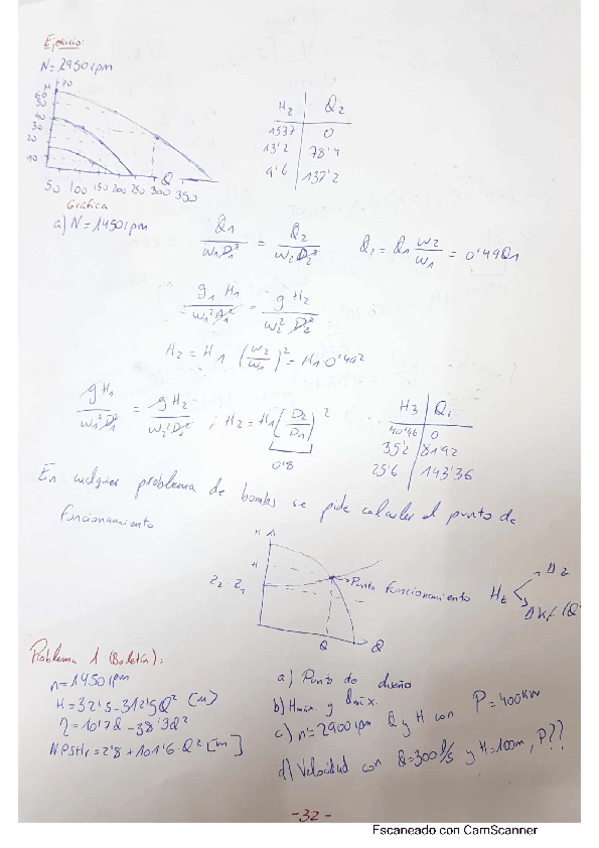 Ejercicio:
N=2950rpm
H
70
60
50
40
30
20
10
50 100 150 200 250 300 350
Q
Gráfica
H2 Q2
15'37 0
13'2 78'4
9'6 137'2
a) N=1450rpm
Q1/(ω1D1³) = Q2/(ω2D2³)
Q2 = Q1 ω2/ω1 = 0'49Q1
g1 H1/(ω1²D1²) = g H2/(ω2² D2²)
H2 = H1 (ω2/ω1)² = H1 0'49²
gH1/(ω1²D1²) = gH2/(ω2²D2²) ; H2 = H1(D2/D1)²
0'8
H3 Q1
40'46 0
35'2 81'92
25'6 143'36
En cualquier problema de bombas se pide calcular el punto de
funcionamiento
H
H
Z2-Z1
Punto funcionamiento
Q
Q
Problema 1 (Boletín):
n=1450rpm
H=32'5-312'5Q² [m]
η=10'7Q-38'3Q²
NPSHr=2'8+101'6·Q² [m]
a) Punto de diseño
b) Hmax. y
c) n'=2900rpm Q y H con P=400kW
d) Velocidad con Q=300l/s y H=100m, P??
-32-
Escaneado con CamScanner